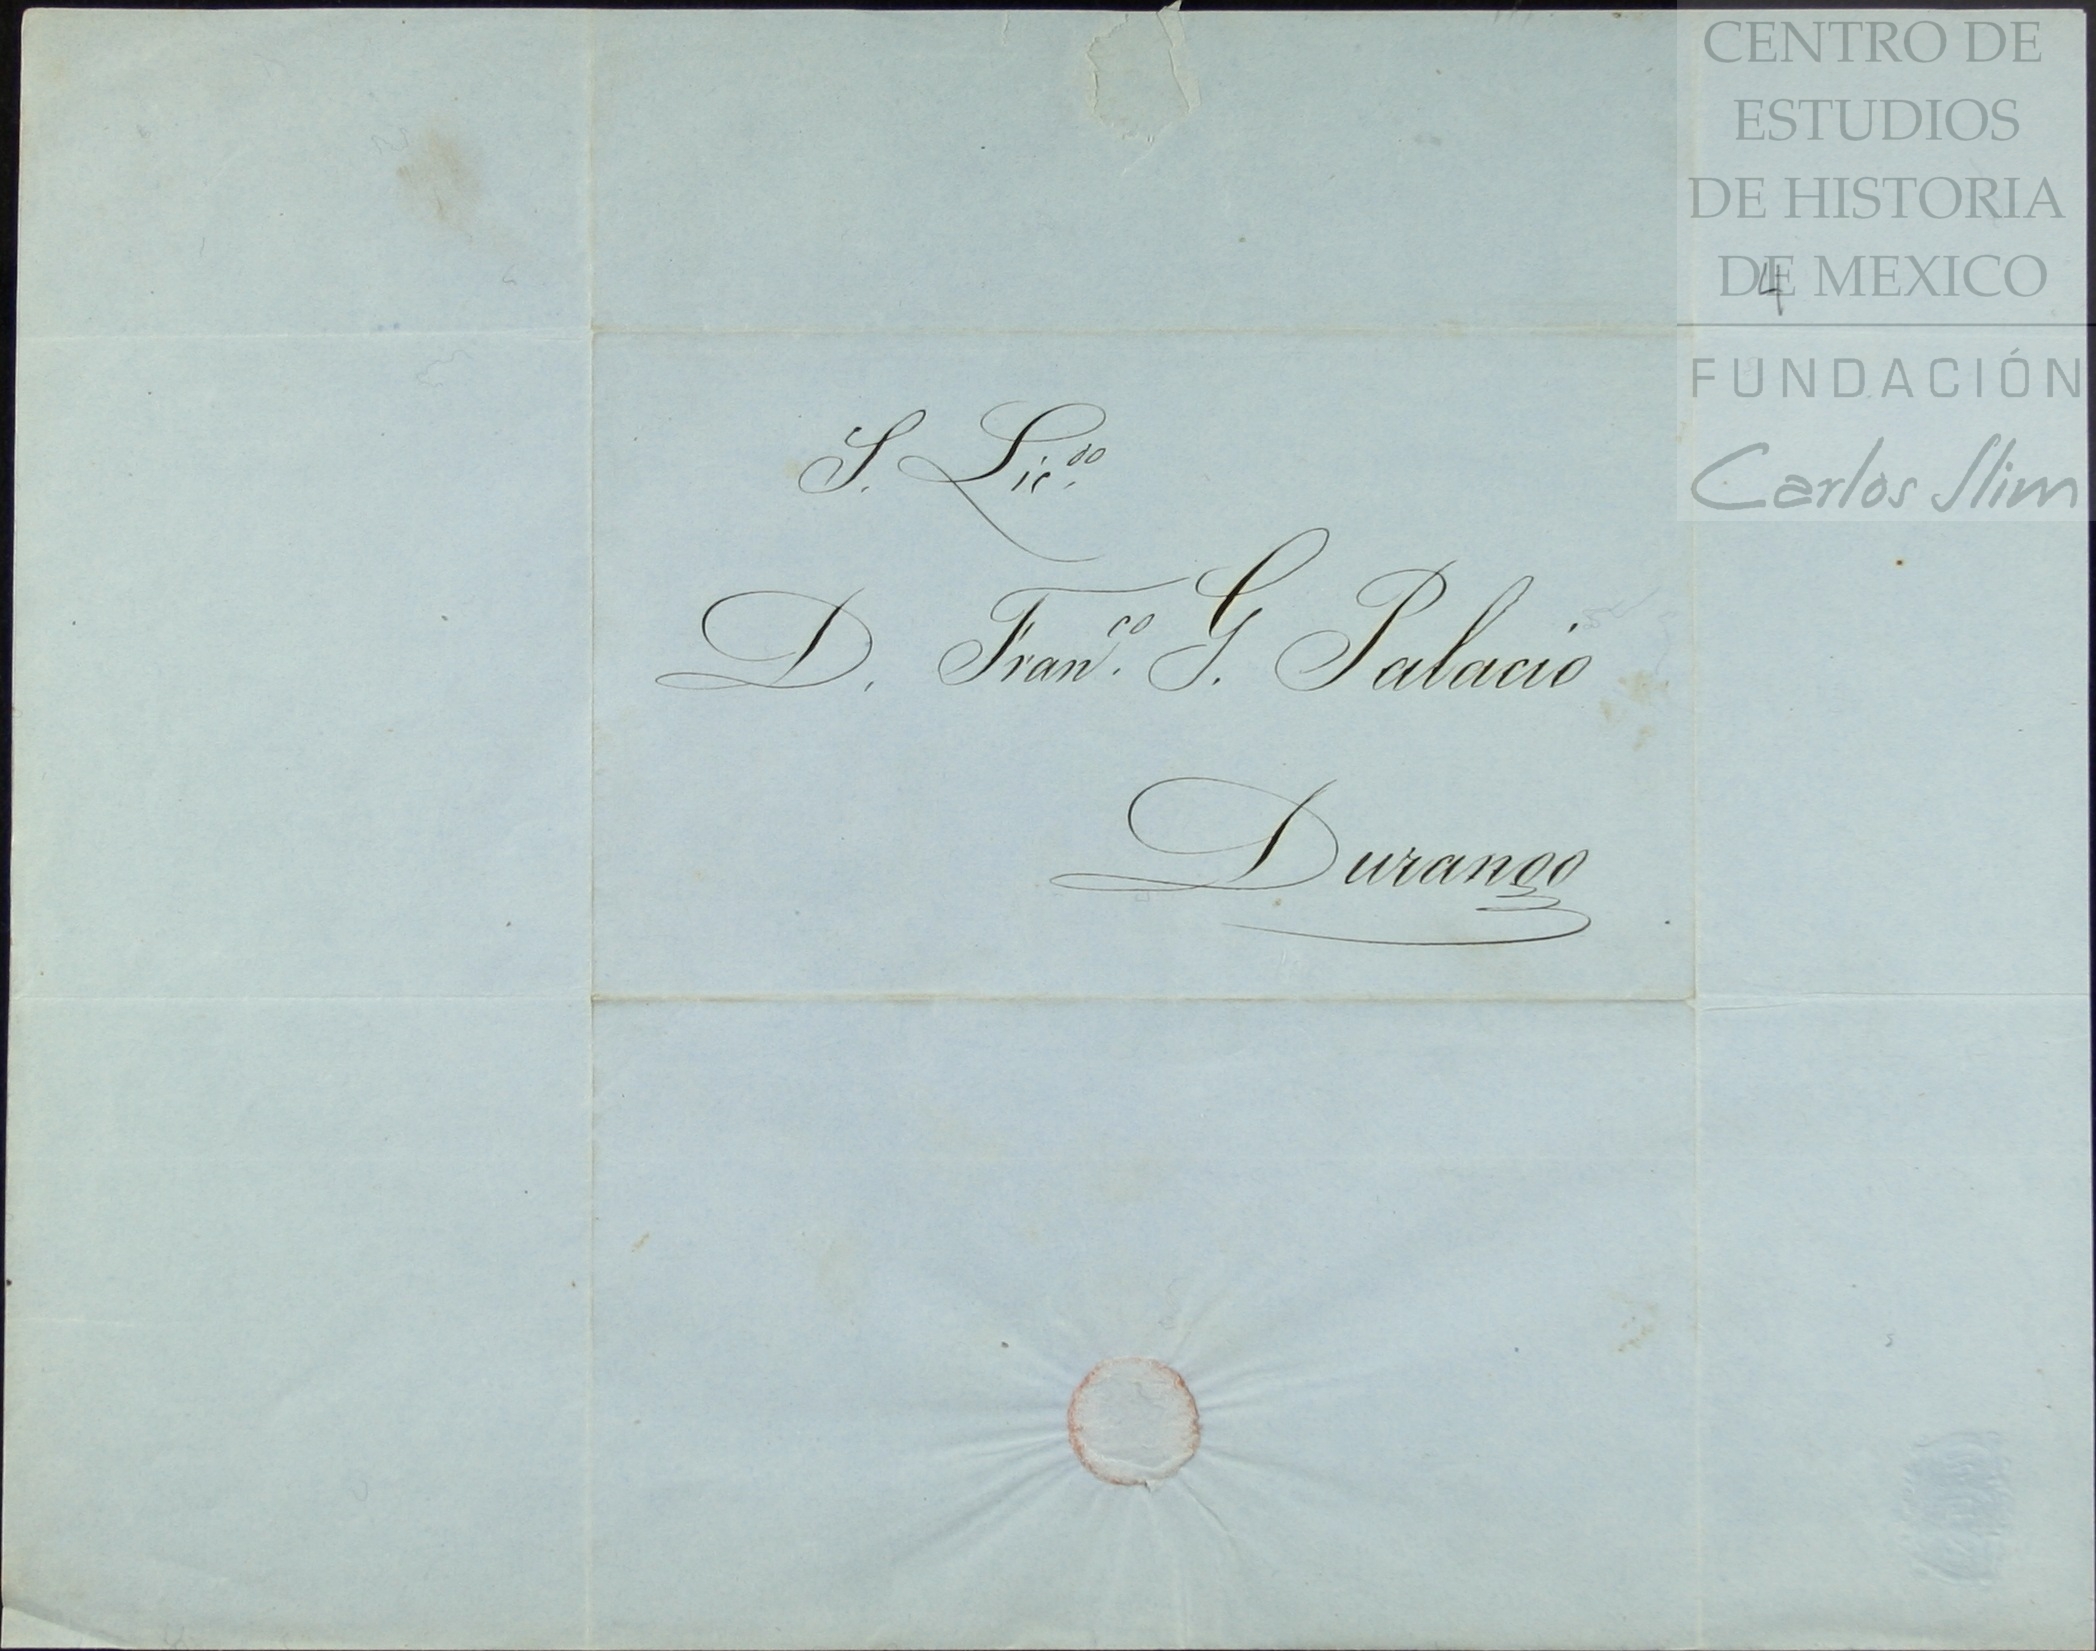 CENTRO DE
ESTUDIOS
DE HISTORIA
DE MEXICO
4
FUNDACIÓN
Carlos Slim
S. Lic.do
D. Fran.co G. Palacio
Durango